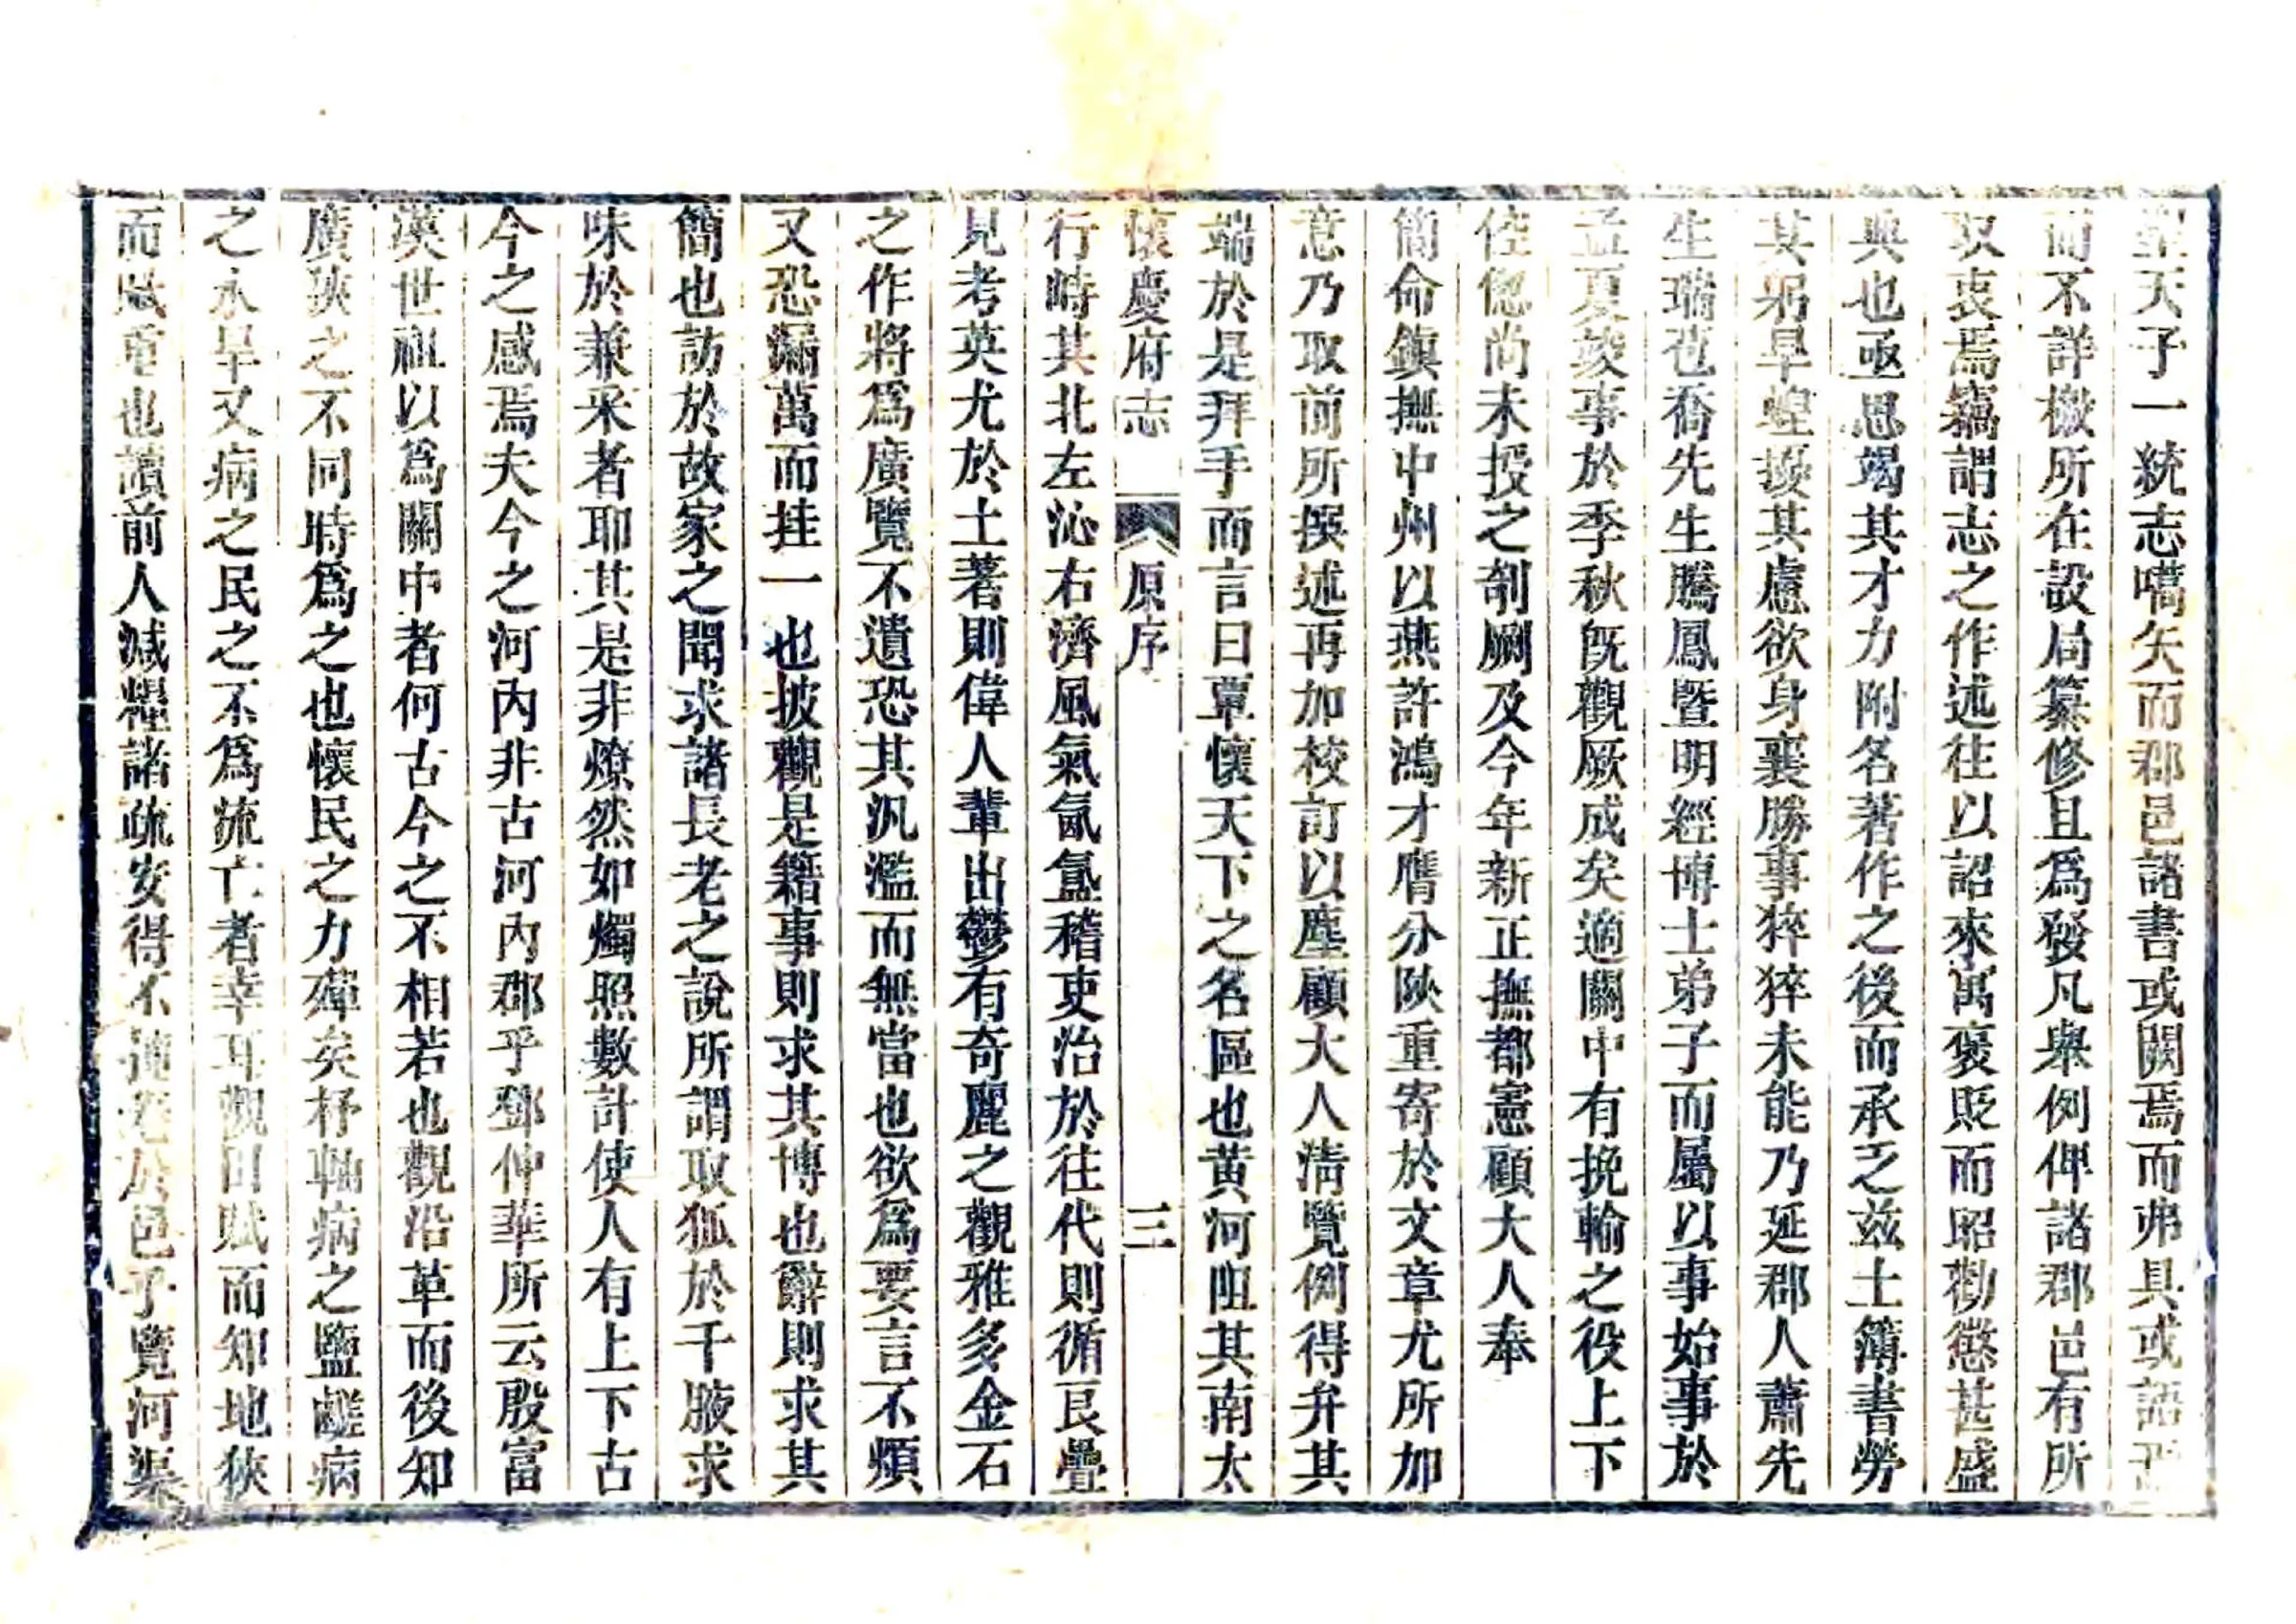 聖天子一統志嚆矢而郡邑諸書或闕焉而弗具或語焉
而不詳檄所在設局纂修且爲發凡舉例俾諸郡邑有所
取衷焉竊謂志之作述往以詔來寓褒貶而昭勸懲甚盛
典也亟思竭其才力附名著作之後而承乏茲土簿書勞
其躬旱蝗擾其慮欲身襄勝事猝猝未能乃延郡人蕭先
生瑞苞喬先生騰鳳暨明經博士弟子而屬以事始事於
孟夏竣事於季秋旣觀厥成矣適關中有挽輸之役上下
倥偬尚未授之剞劂及今年新正撫都憲顧大人奉
簡命鎭撫中州以燕許鴻才膺分陝重寄於文章尤所加
意乃取前所撰述再加校訂以塵顧大人淸覽例得弁其
端於是拜手而言曰覃懷天下之名區也黄河阻其南太
懷慶府志 原序 三
行峙其北左沁右濟風氣氤氳稽吏治於往代則循艮疊
見考英尤於土著則偉人輩出鬱有奇麗之觀雅多金石
之作將爲廣覽不遺恐其汎濫而無當也欲爲要言不煩
又恐漏萬而挂一也披觀是籍事則求其博也辭則求其
簡也訪於故家之聞求諸長老之說所謂取狐於千腋求
味於兼采者耶其是非燎然如燭照數計使人有上下古
今之感焉夫今之河内非古河内郡乎鄧仲華所云殷富
漢世祖以爲關中者何古今之不相若也觀沿革而後知
廣狹之不同時爲之也懷民之力殫矣杼軸病之鹽鹺病
之水旱又病之民之不爲流亡者幸耳觀田賦而知地狹
而賦重也讀前人減糧諸疏安得不捶卷於邑乎覽河渠